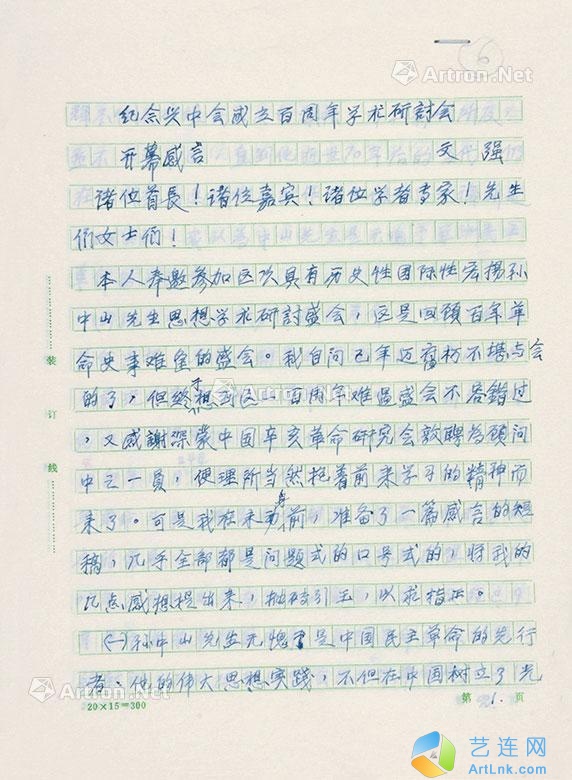 6
Artron.Net
纪念兴中会成立百周年学术研討会
开幕感言 文强
諸位首長！諸位嘉宾！諸位学者专家！先生
們女士们！
本人奉邀参加这次具有历史性国际性宏揚孙
中山先生思想学术研討盛会，这是回顾百年革
命史事难逢的盛会。我自问已年迈腐朽不堪与会
的了，但终于想到这一百周年难遇盛会不容错过
，又感謝深蒙中国辛亥革命研究会敦聘為顾问
中之一員，便理所当然抱着前来学习的精神而
来了。可是我在未动身前，准备了一篇感言的短
稿，几乎全部都是问题式的口号式的，将我的
几点感想提出来，抛砖引玉，以求指正。
㈠孙中山先生无愧是中国民主革命的先行
者、他的伟大思想实践，不但在中国树立了光
装
订
线
20×15=300
第 1. 页
Artron.Net
艺连网
ArtLnk.com